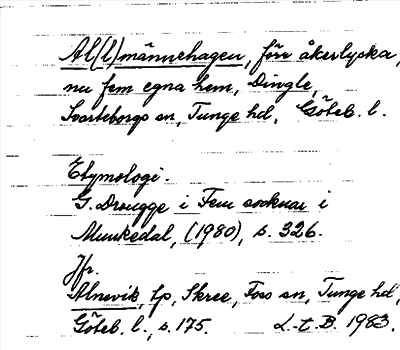 Al(l)männehagen, förr åkerlycka,
nu fem egna hem, Dingle,
Svarteborgs sn, Tunge hd, Göteb. l.
Etymologi.
G. Drougge i Fem socknar i
Munkedal, (1980), s. 326.
Jfr.
Alnevik, Lp, Skree, Foss sn, Tunge hd,
Göteb. l., s. 175. L-t B. 1983.